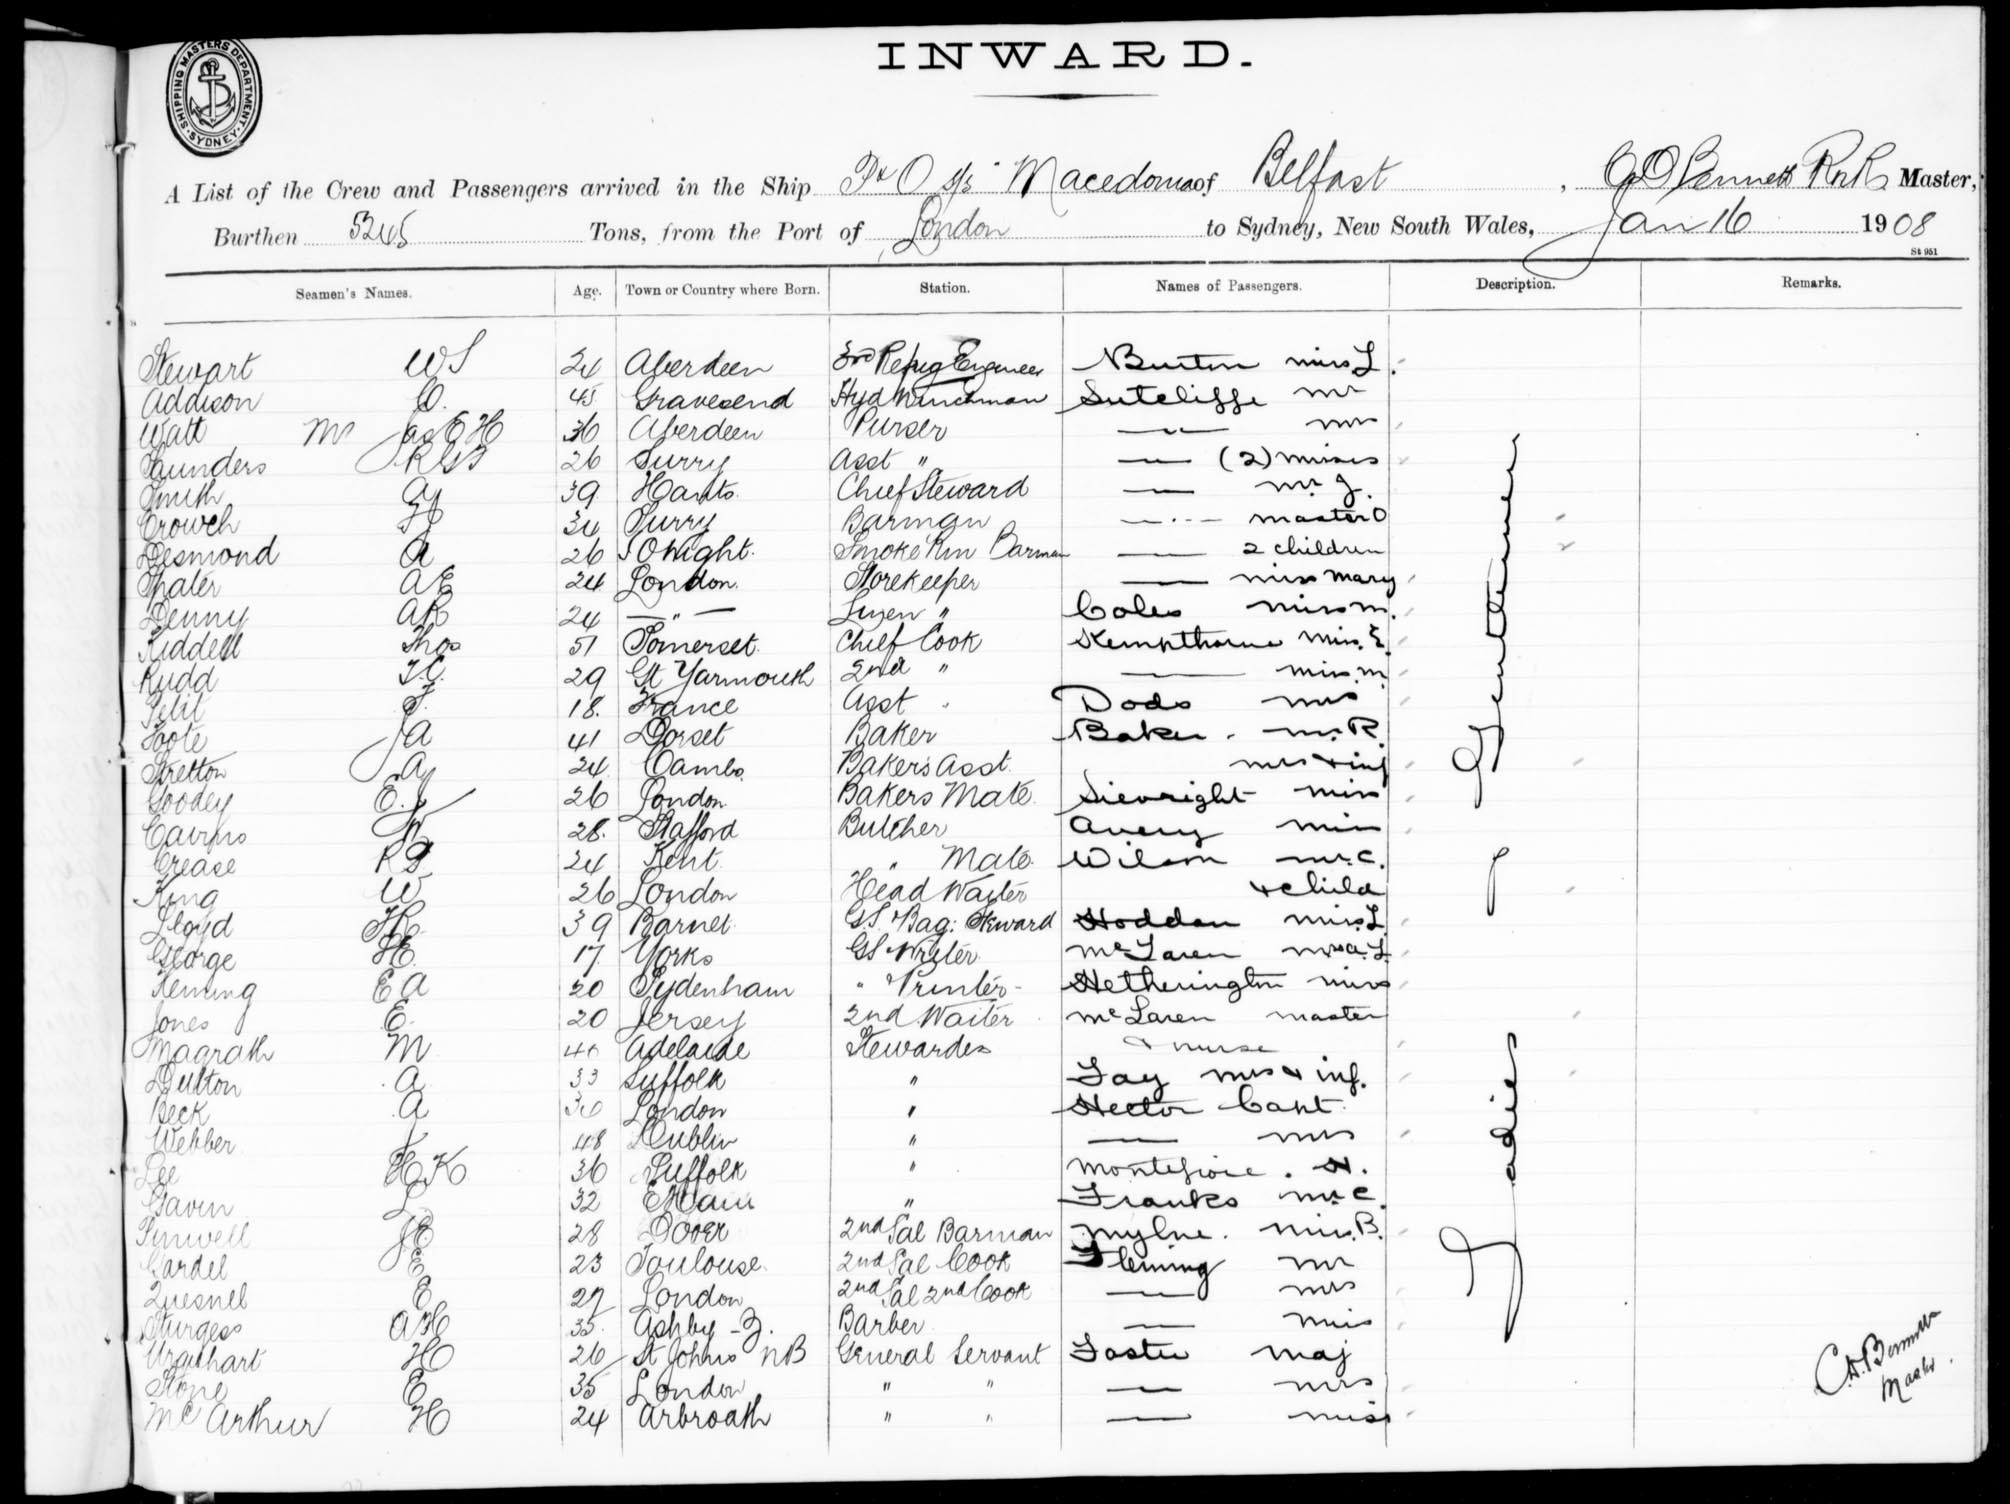 INWARD.
SHIPPING MASTERS DEPARTMENT. SYDNEY.
A List of the Crew and Passengers arrived in the Ship P & O s/s Macedonia of Belfast, C D Bennett RNR Master,
Burthen 5245 Tons, from the Port of London to Sydney, New South Wales, Jan 16 1908
St 951
Seamen's Names. Age. Town or Country where Born. Station. Names of Passengers. Description. Remarks.
Stewart W S 24 Aberdeen 3rd Refrig Engineer Burton miss L.
Addison C. 45 Gravesend Hyd Winchman Sutcliffe mr
Watt Mr Jas E H 36 Aberdeen Purser — " — mrs
Saunders R G B 26 Surry Asst " — (2) misses
Smith A J 39 Hants. Chief Steward — mr J.
Crowch H 34 Surry Barman — master O
Desmond A 26 I O Wight. Smoke Rm Barman — 2 children
Thaler A E 24 London. Storekeeper — miss mary
Denny A R 24 — " — Linen " Coles miss m.
Kiddell Thos 51 Somerset. Chief Cook Kempthorne miss. E
Rudd T. C. 29 Gt Yarmouth 2nd " — miss. m.
Petit 18. France Asst " Dods mrs
Foote J A 41 Dorset Baker Baker. mr. R.
Stretton A J 24 Cambs. Bakers Asst. mrs & inf
Goodey E. J 26 London. Bakers Mate. Sievright miss
Cairns 28. Stafford Butcher Avery miss
Crease R 24 Kent. " Mate. Wilson mr. C.
King W 26 London Head Waiter & child
Lloyd 39 Barnet. G.S. Bag: Steward Hodden miss L.
George H E. 17 Yorks GS Writer. McLaren mrs A. L.
Fleming E A 20 Sydenham " Printer - Hetherington miss
Jones E. 20 Jersey 2nd Waiter McLaren master
Magrath M 40 Adelaide Stewardess & nurse
Dutton A 33 Suffolk " Fay mrs & inf.
Beck A 36 London " Hector Capt.
Webber 48 Dublin " — mrs
Lee H K 36 Suffolk " Montefiore. H.
Gavin L 32 " Franks mr. C.
Sinwell J E 28 Dover 2nd Sal Barman Mylne. miss. B.
Gardel E 23 Toulouse. 2nd Sal Cook Fleming mr
Quesnel E 27 London 2nd Sal 2nd Cook — mrs
Sturgess A H 35. Ashby - Z. Barber — miss
Urquhart H 26 St Johns NB General Servant Foster maj
Stone E 35 London " " — mrs
McArthur H 24 Arbroath " " — miss
Gentlemen
Ladies
C. D. Bennett
Master.